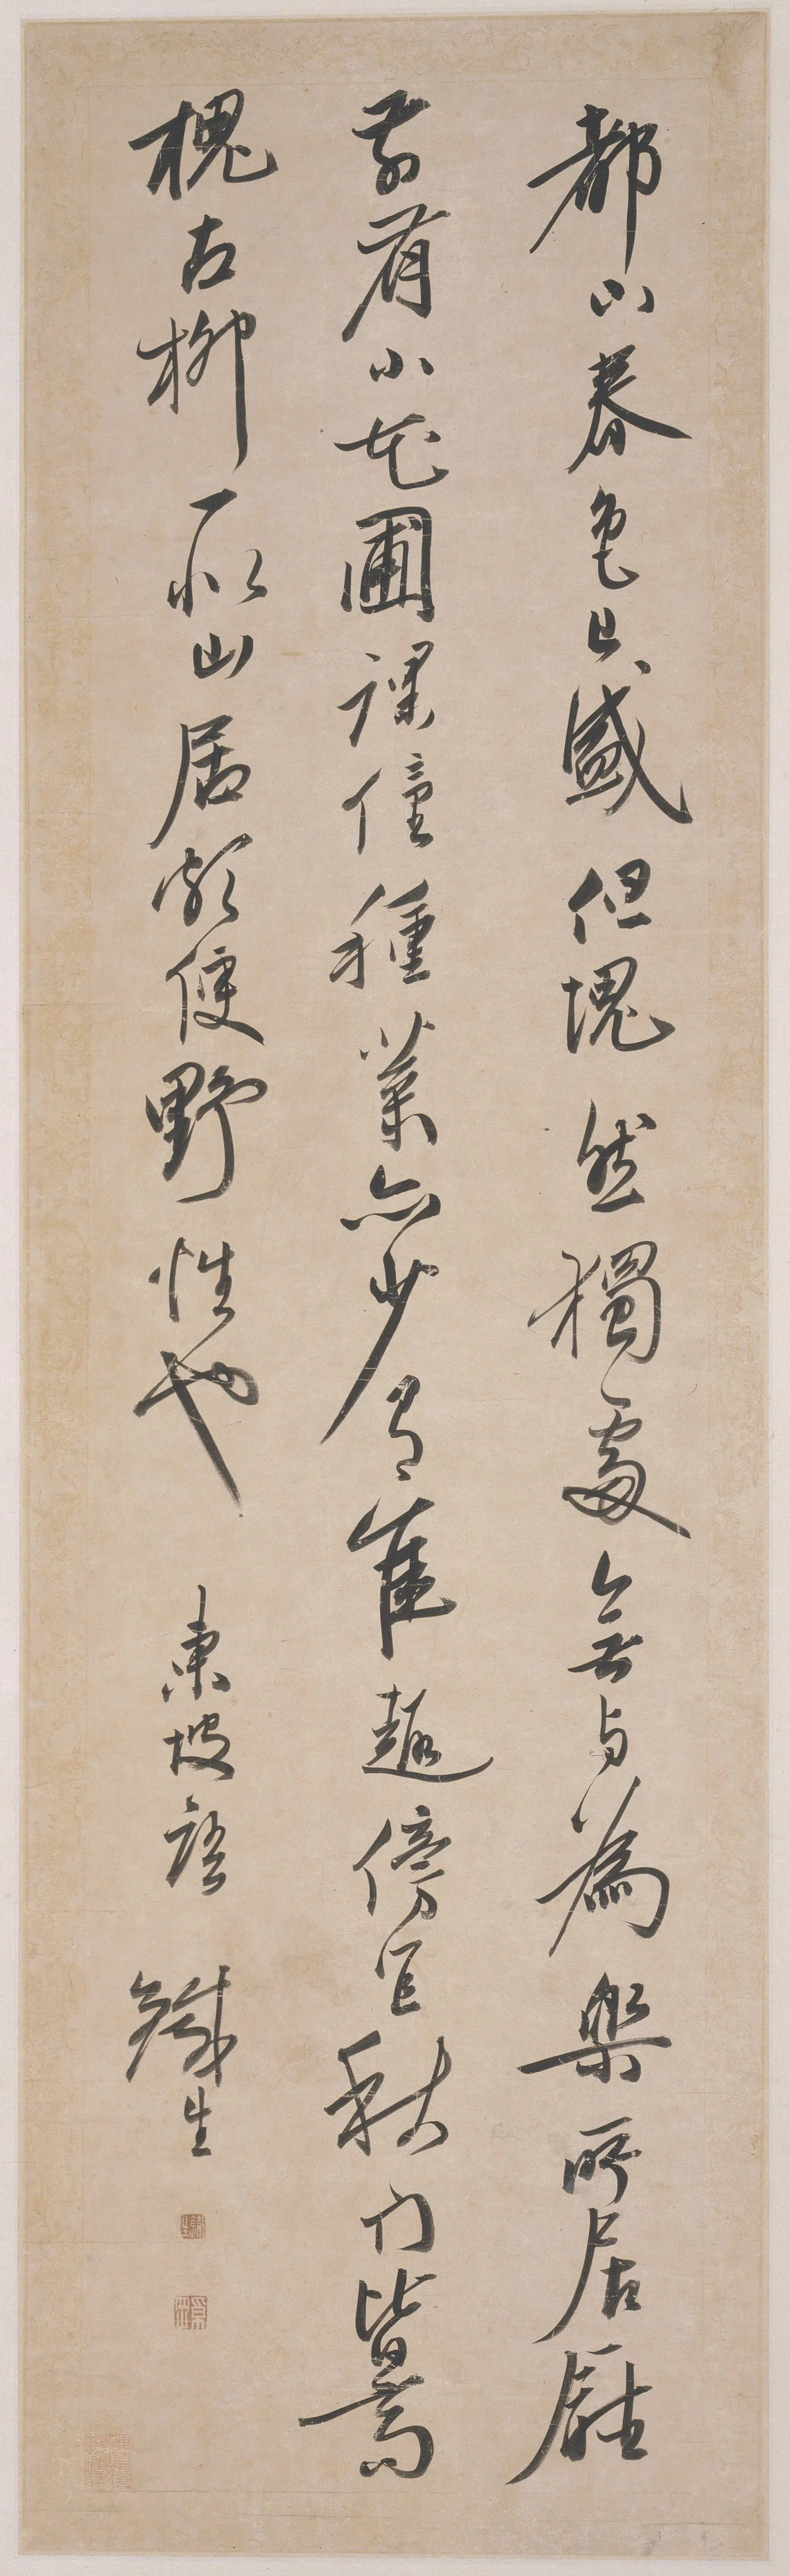 都下春色已盛但塊然獨處無與為樂所居廳
前有小花圃課僮種菜亦少有佳趣傍宜秋門皆高
槐古柳一似山居頗便野性也 東坡語 鐵生